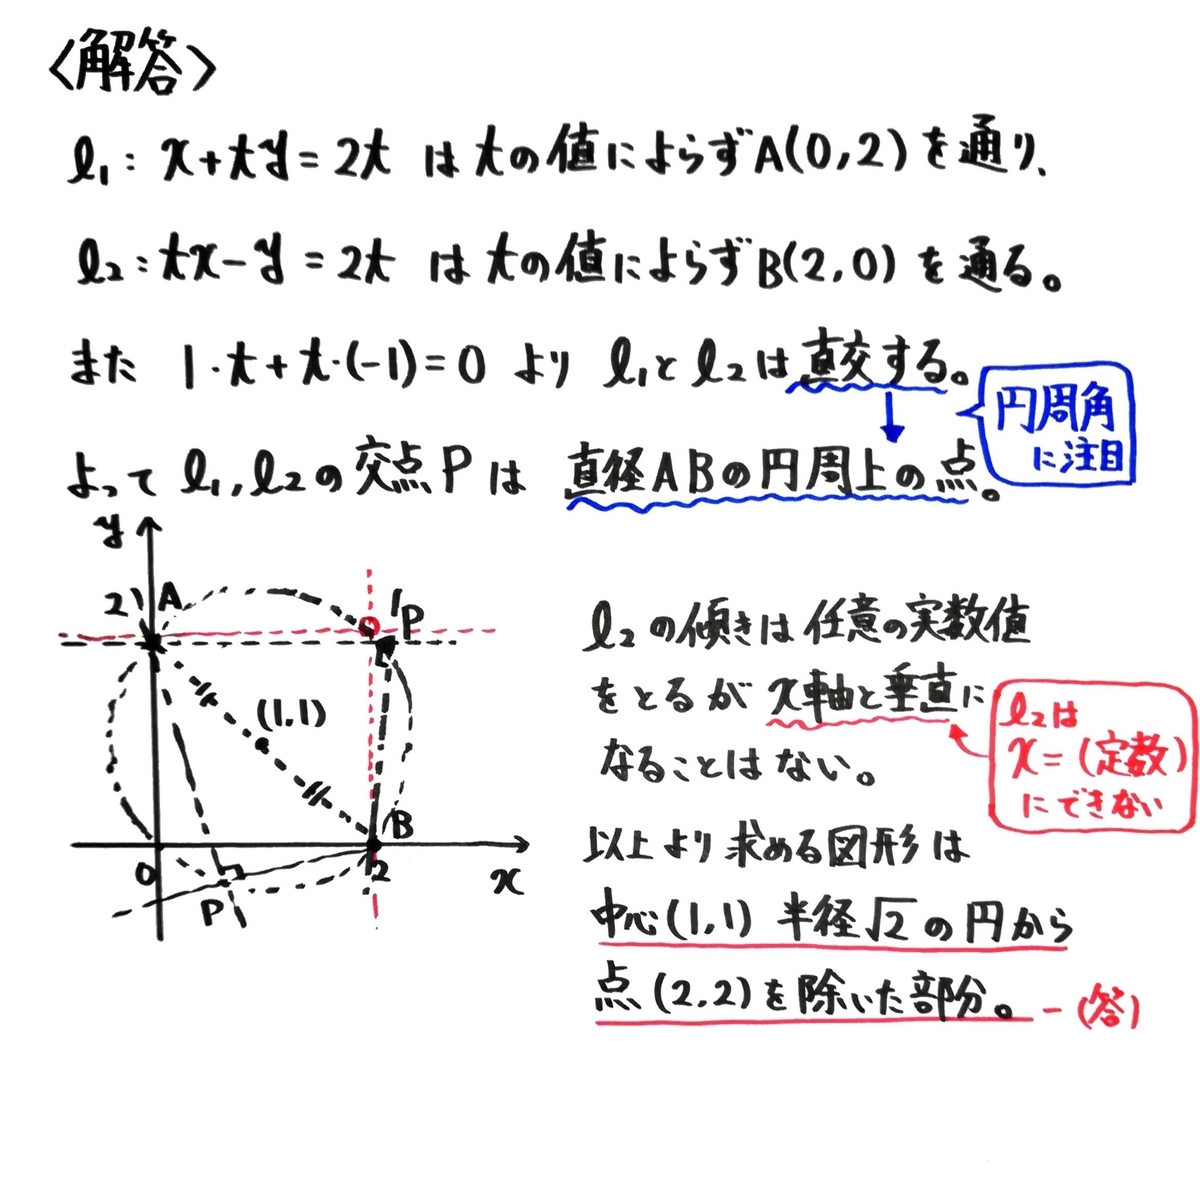 〈解答〉
l₁: x+ty=2t は tの値によらずA(0,2)を通り、
l₂:tx-y=2t は tの値によらずB(2,0)を通る。
また 1·t+t·(-1)=0 より l₁とl₂は直交する。
円周角
に注目
よって l₁,l₂の交点Pは 直径ABの円周上の点。
y
2
A
P
(1,1)
B
O
2
x
P
l₂の傾きは任意の実数値
をとるがx軸と垂直に
なることはない。
l₂は
x=(定数)
にできない
以上より求める図形は
中心(1,1) 半径√2の円から
点(2,2)を除いた部分。-(答)